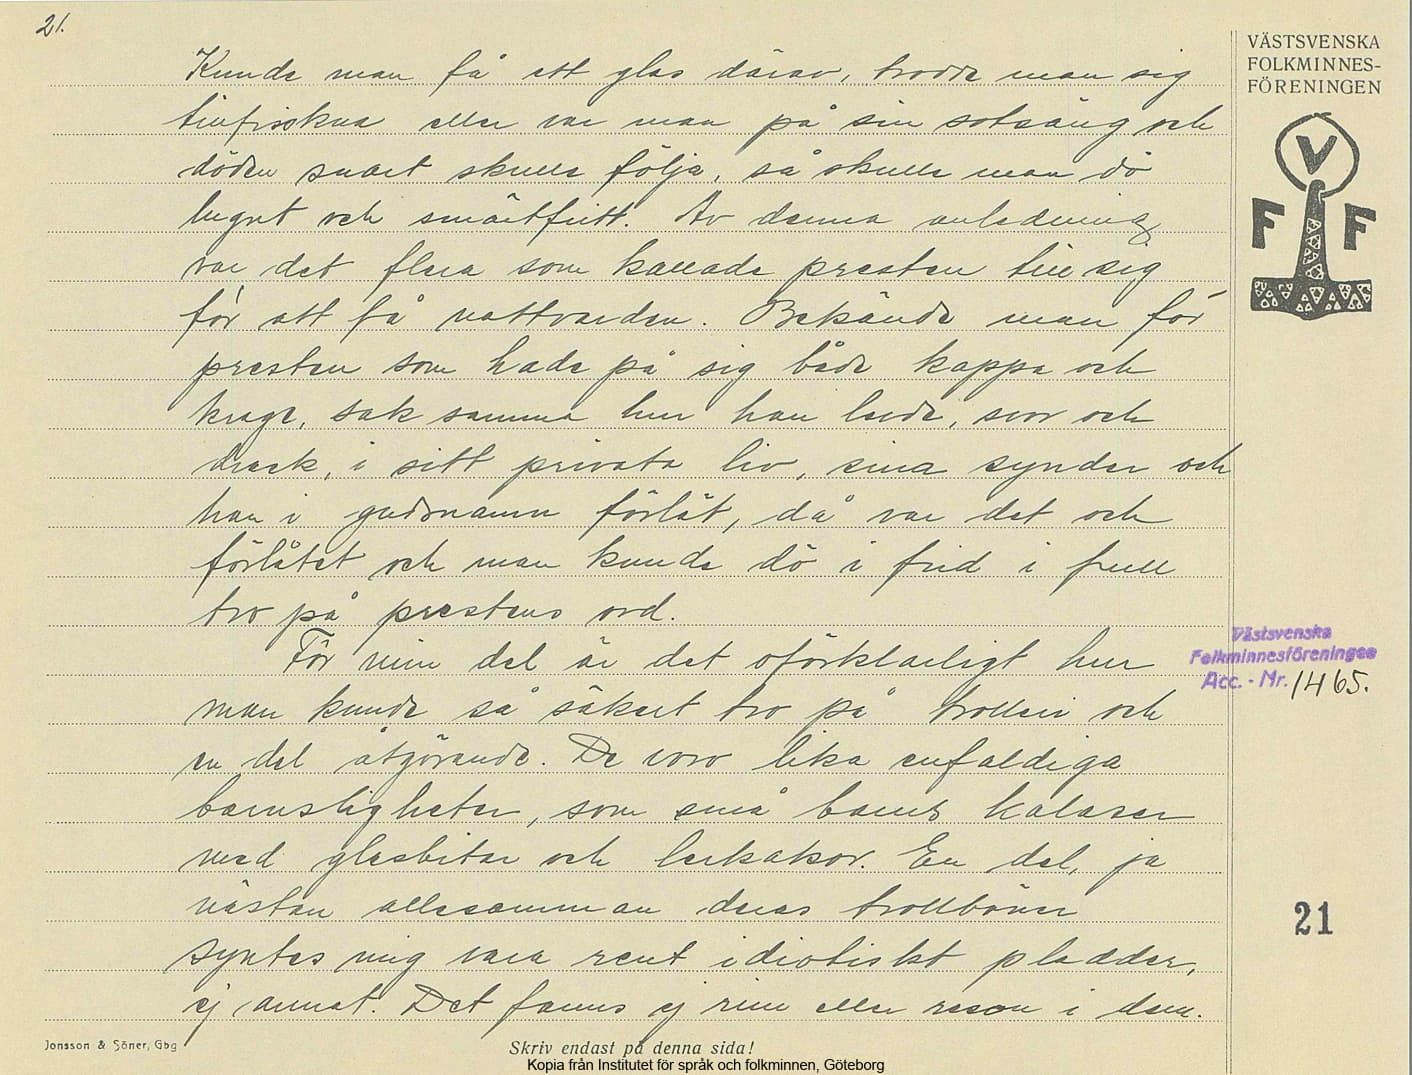 21.
VÄSTSVENSKA
FOLKMINNES-
FÖRENINGEN
V
F F
Kunde man få ett glas därav, trodde man sig
tillfriskna eller var man på sin sotsäng och
döden snart skulle följa, så skulle man dö
lugnt och smärtfritt. Av denna anledning
var det flera som kallade presten till sig
för att få nattvarden. Bekände man för
presten som hade på sig både kappa och
krage, sak samma hur han levde, svor och
drack, i sitt privata liv, sina synder och
han i gudsnamn förlät, då var det och
förlåtet och man kunde dö i frid i full
tro på prestens ord.
För min del är det oförklarligt hur
man kunde så säkert tro på trolleri och
en del åtgörande. De voro lika enfaldiga
barnsligheter, som små barns kalaser
med glasbitar och lerkakor. En del, ja
nästan allesamman deras trollböner
syntes mig vara rent idiotiskt pladder,
ej annat. Det fanns ej rim eller reson i dem.
Västsvenska
Folkminnesföreningen
Acc. - Nr. 1465.
21
Jonsson & Söner, Gbg
Skriv endast på denna sida!
Kopia från Institutet för språk och folkminnen, Göteborg